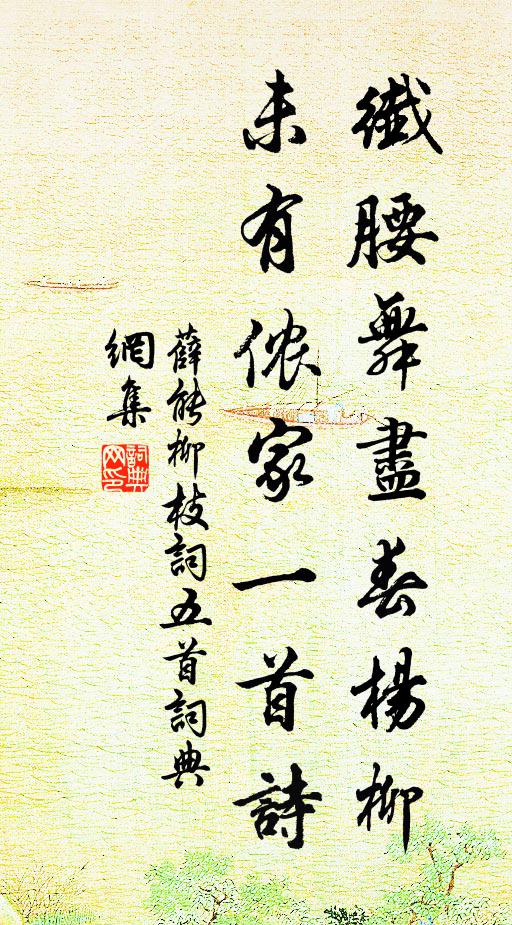 纖腰舞盡春楊柳
未有儂家一首詩
薛能柳枝詞五首詞典
網集
詞典
网印